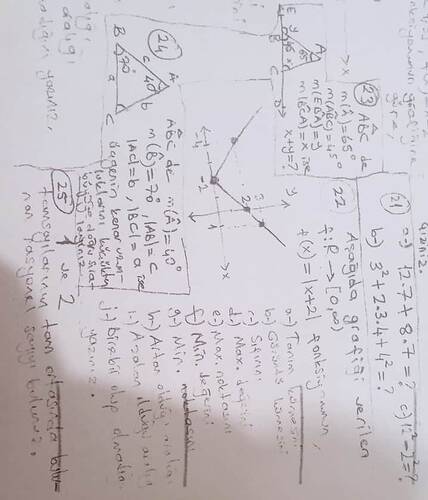 çiziniz.
21 a-) 12.7+8.7=? c-) 12²-2²=?
b-) 3²+2.3.4+4²=?
22 Aşağıda grafiği verilen
f:R→[0,∞)
f(x)=|x+2| fonksiyonunun,
a-) Tanım kümesini
b-) Görüntü kümesini
c-) Sıfırını
d-) Max. değerini
e-) Max. noktasını
f-) Min. değerini
g-) Min. noktasını
h-) Artan olduğu aralığı
i-) Azalan olduğu aralığı
j-) Birebir olup olmadığını
yazınız.
y
x
-4
-2
1
2
3
23 ABC de
m(A)=65°
m(ABC)=45°
m(EBA)=y
m(ECA)=x ise
x+y=?
E
A
B
C
D
y
45
65°
x
24 ABC de m(A)=40°
m(B)=70°, |AB|=c
|AC|=b, |BC|=a ise
üçgenin kenar uzun-
luklarını küçükten
büyüğe doğru sıra-
layınız.
A
B
C
a
b
c
40°
70°
25 1 ve 2
tamsayılarının tam ortasında bulu-
nan rasyonel sayıyı bulunuz.